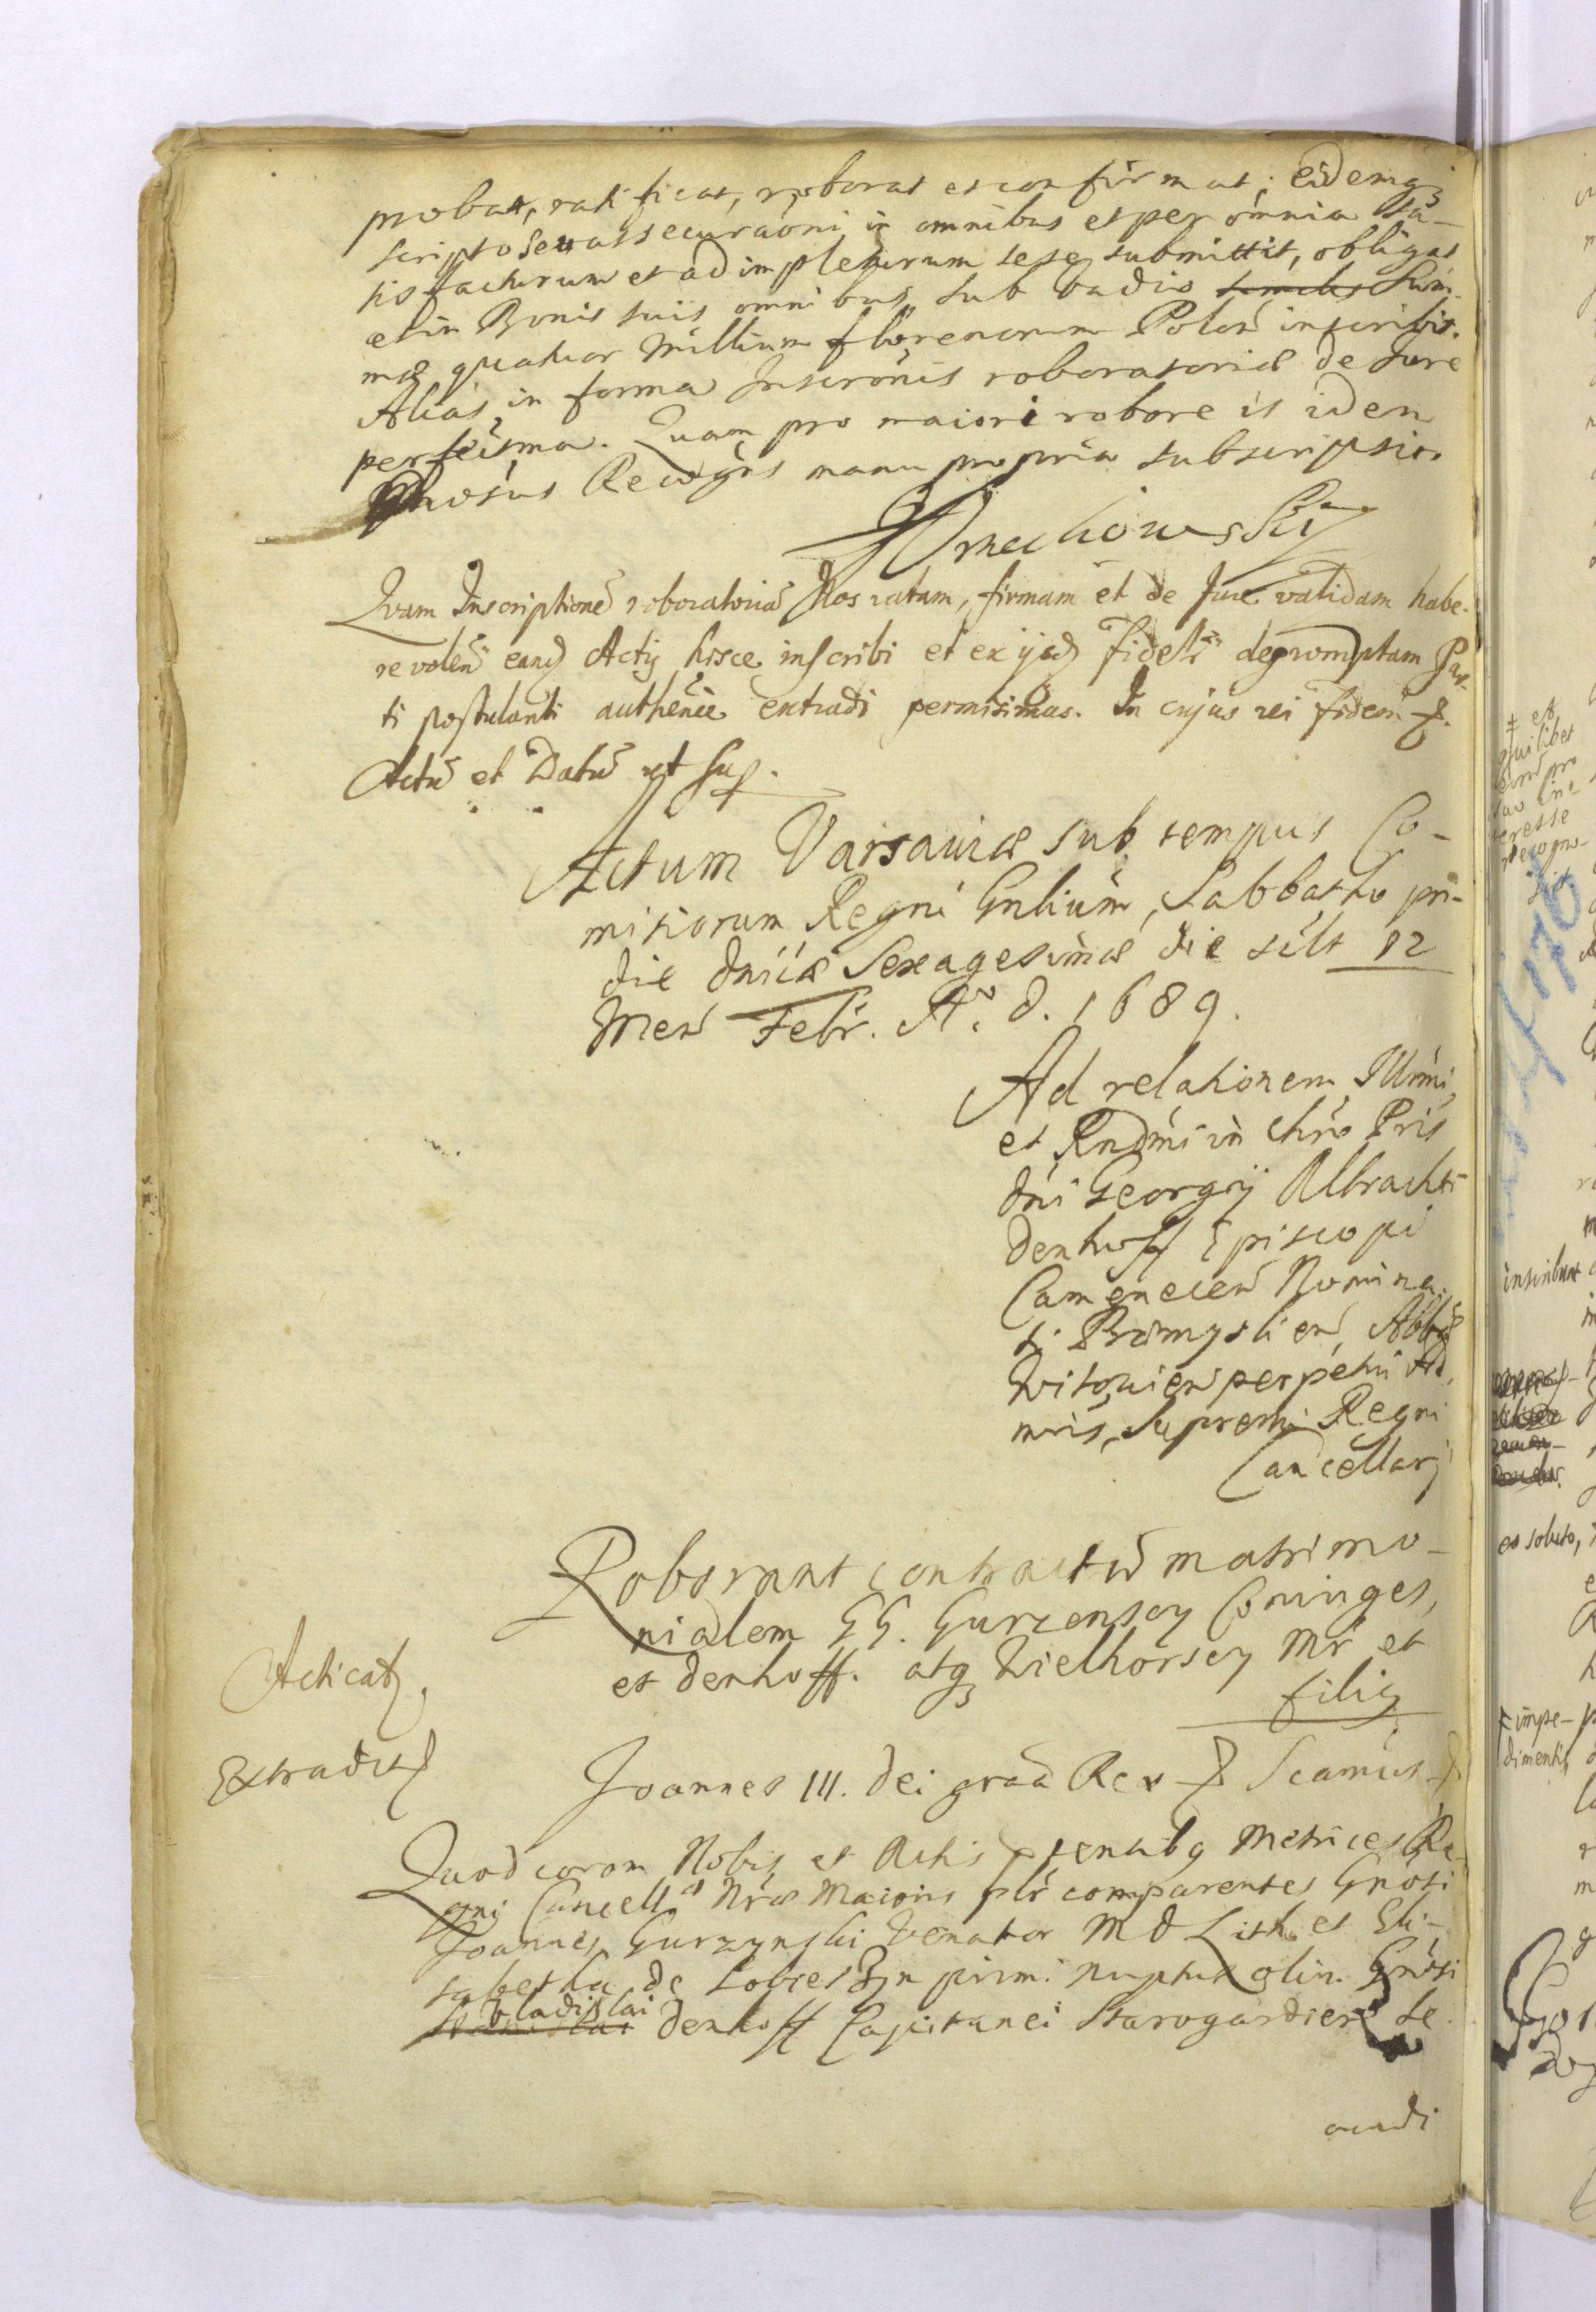 probat, ratificat, roborat et confirmat; eidemq;
scripto seu assecuraoni in omnibus et per omnia sa-
tisfacturum et adimpleturum sese submittit, obligat
et in Bonis suis omnibus sub vadio similis Sum-
mæ quatuor Millium florenorum Polon inscribit.
Alias in forma Inscronis roboratoriæ de Jure
perfcisma. Quam pro maiori robore is idem
Gnosus Recogns manu propria subscripsit.
Quam Inscriptione roboratoria Nos ratam, firmam et de Jure validam habe-
re volen eand Actis hisce inscribi et ex ijsd fideliter depromptam Par-
ti postulanti authentice extradi permisimus. In cujus rei fidem &.
Actu et Datu ut sup.
Actum Varsaviæ sub tempus Co-
mitiorum Regni Gnlium, Sabbatho pri-
die dnicæ Sexagesimæ die scilt 12
Men Febr. Ao. d. 1689.
Ad relationem Illrmi
et Rndmi in Chro Pris
dni Georgij Albrachti
denhoff Episcopi
Camenecen Nomina-
ti Præmyslien, Abbtæ
Witovien perpetui Ad-
mris, Supremi Regni
Cancellarj
Roborant contractu matrimo-
nialem GG. Gurzenscy Coniuges,
et denhoff. atq; Wielhorscy Mr et
filij
Acticat.
Extradit
Joannes III. dei graa Rex & Scamus &
Quod coram Nobis et Actis pntenubq Metrices Re-
gni Cancell. Nræ Maioris plr comparentes Gnosi
Joannes Gurzynski Venator M d Lith. et Eli-
sabetha de Lobies Pzn primi nuptus olim Gnosi
Vladislai
denhoff Capitanei Starogardien se-
cundi
et
quilibet
eorum pro
suo in-
teresse
recogno-
scit
176
inscribunt
eo soluto,
impe-
dimentis